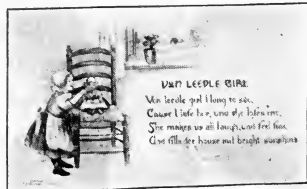 VUN LEEDLE GIRL
Vun leedle girl I long to see,
Cause I lofe her, und she lofes me,
She makes us all laugh, und feel fine,
Und fills der house mit bright sunshine